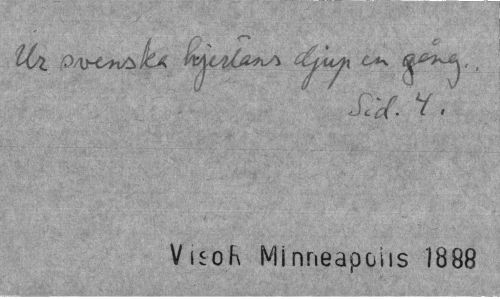 Ur svenska hjertans djup en gång.
Sid. 4.
Visoh Minneapolis 1888